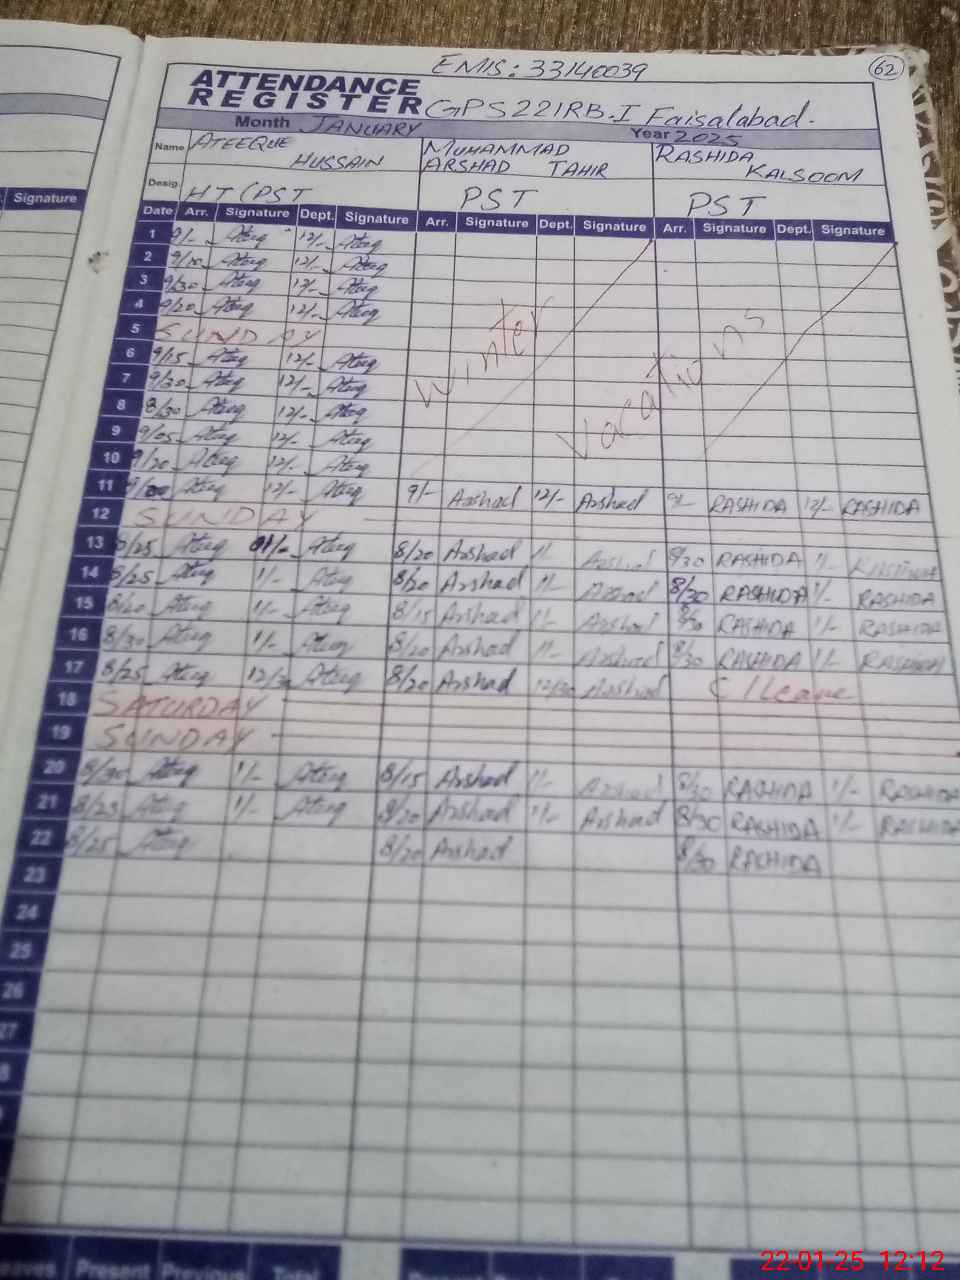 EMIS: 33140039
62
ATTENDANCE
REGISTER GPS 221RB-I Faisalabad.
Month JANUARY Year 2025
Name ATEEQUE HUSSAIN MUHAMMAD ARSHAD TAHIR RASHIDA KALSOOM
Desig. HT (PST PST PST
Signature
Date Arr. Signature Dept. Signature Arr. Signature Dept. Signature Arr. Signature Dept. Signature
1 9/- Ateeq 12/- Ateeq
2 9/10 Ateeq 12/- Ateeq
3 9/30 Ateeq 12/- Ateeq
4 9/20 Ateeq 12/- Ateeq
5 SUNDAY
6 9/15 Ateeq 12/- Ateeq
7 9/30 Ateeq 12/- Ateeq
Winter Vacations
8 8/30 Ateeq 12/- Ateeq
9 9/05 Ateeq 12/- Ateeq
10 9/20 Ateeq 12/- Ateeq
11 Ateeq 12/- Ateeq 9/- Arshad 12/- Arshad 9/- RASHIDA 12/- RASHIDA
12 SUNDAY
13 8/25 Ateeq 01/- Ateeq 8/20 Arshad 1/- Arshad 8/30 RASHIDA 1/- RASHIDA
14 8/25 Ateeq 1/- Ateeq 8/20 Arshad 1/- Arshad 8/30 RASHIDA 1/- RASHIDA
15 8/20 Ateeq 1/- Ateeq 8/15 Arshad 1/- Arshad 8/30 RASHIDA 1/- RASHIDA
16 8/30 Ateeq 1/- Ateeq 8/20 Arshad 1/- Arshad 8/30 RASHIDA 1/- RASHIDA
17 8/25 Ateeq 12/30 Ateeq 8/20 Arshad 12/30 Arshad C/Leave
18 SATURDAY
19 SUNDAY
20 8/30 Ateeq 1/- Ateeq 8/15 Arshad 1/- Arshad 8/30 RASHIDA 1/- RASHIDA
21 8/25 Ateeq 1/- Ateeq 8/20 Arshad 1/- Arshad 8/30 RASHIDA 1/- RASHIDA
22 8/25 Ateeq 8/20 Arshad 8/30 RASHIDA
23
24
25
26
27
Present Total
22-01-25 12:12